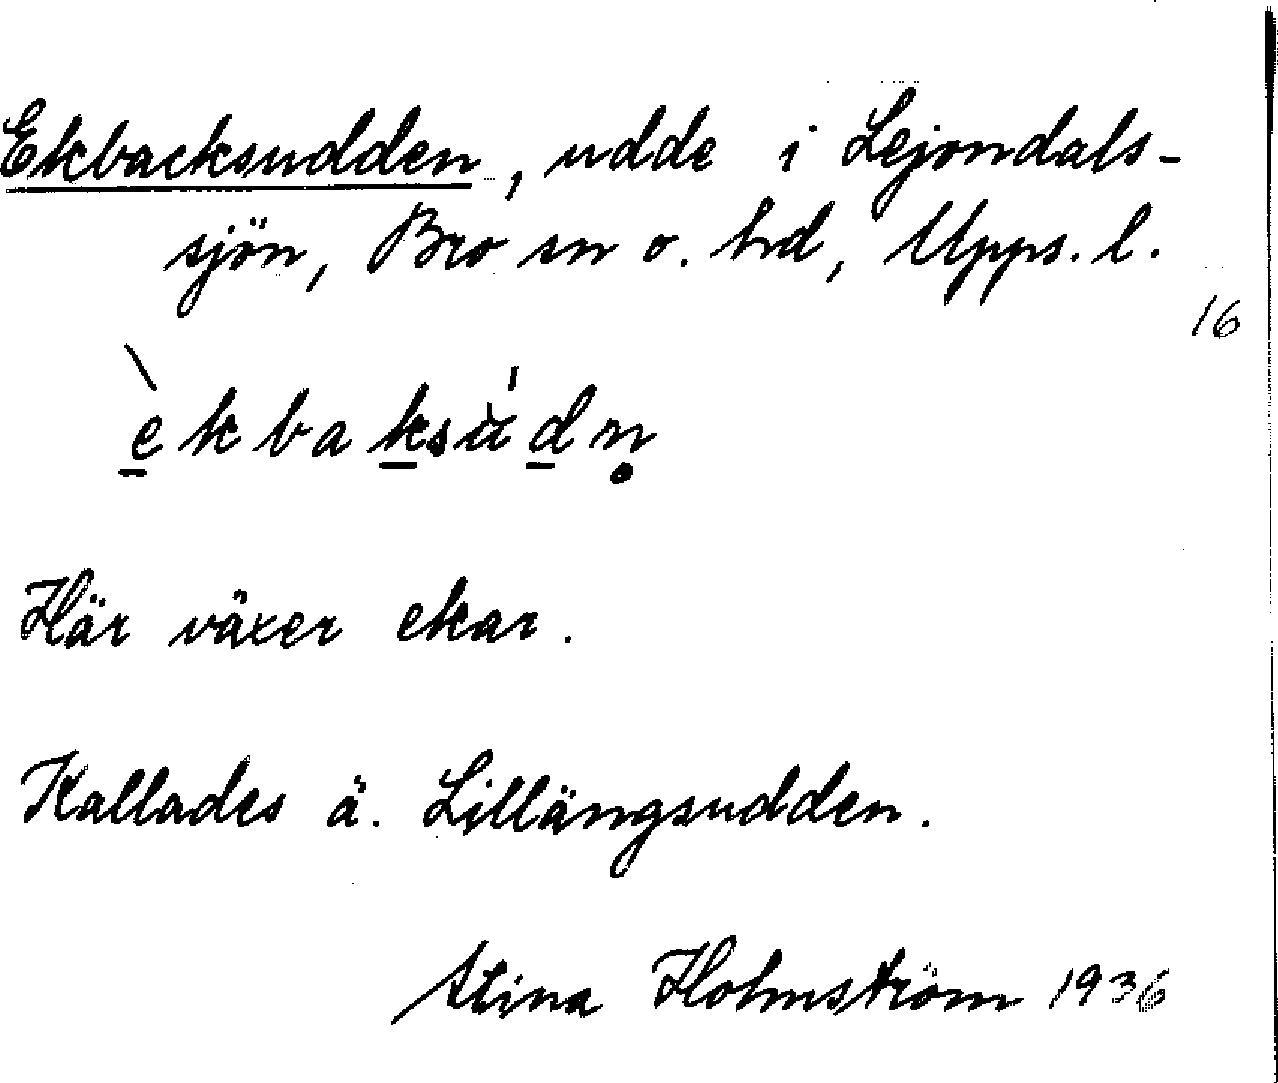 Ekbacksudden, udde i Lejondals-
sjön, Bro sn o. hd, Upps. l.
16
èkbaksúdṇ
Här växer ekar.
Kallades ä. Lillängsudden.
Stina Holmström 1936